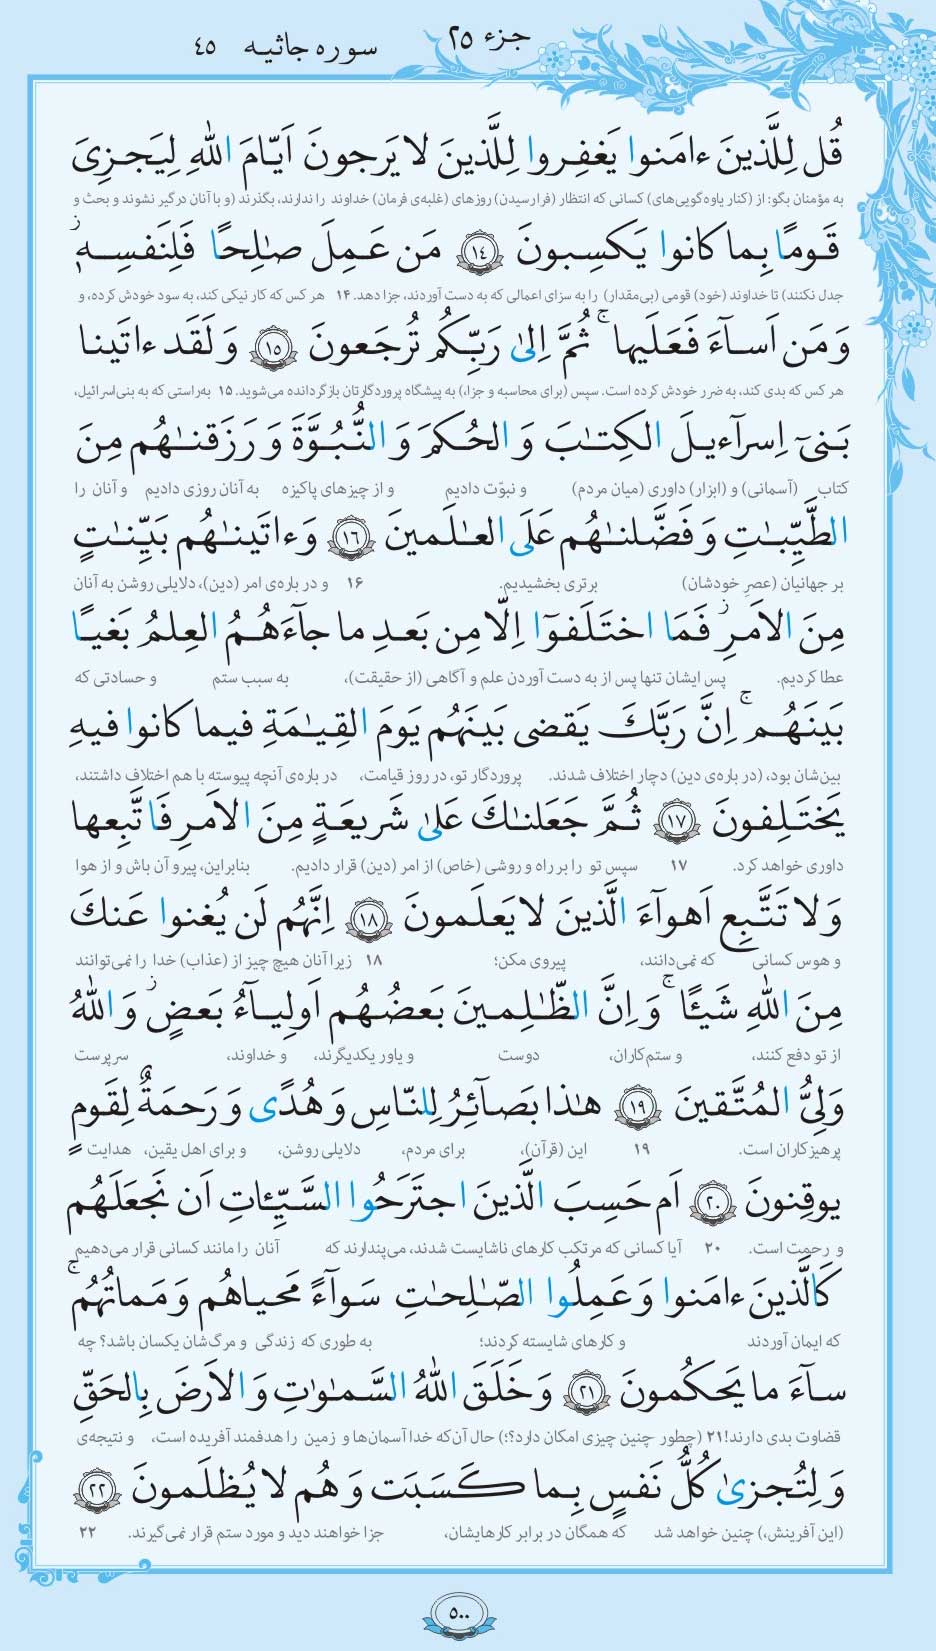 جزء ۲۵
سوره جاثیه ۴۵
قُل لِلَّذينَ ءامَنوا يَغفِروا لِلَّذينَ لا يَرجونَ اَيّامَ اللّٰهِ لِيَجزِىَ
به مؤمنان بگو: از (کنار یاوه‌گویی‌های) کسانی که انتظار (فرارسیدن) روزهای (غلبه‌ی فرمان) خداوند را ندارند، بگذرند (و با آنان درگیر نشوند و بحث و
قَومًا بِما كانوا يَكسِبونَ ﴿۱۴﴾ مَن عَمِلَ صـٰلِحًا فَلِنَفسِهٖ ۖ
جدل نکنند) تا خداوند (خود) قومی (بی‌مقدار) را به سزای اعمالی که به دست آوردند، جزا دهد. ۱۴ هر کس که کار نیکی کند، به سود خودش کرده، و
وَ مَن اَسـآءَ فَعَلَيها ۚ ثُمَّ اِلىٰ رَبِّكُم تُرجَعونَ ﴿۱۵﴾ وَ لَقَد ءاتَينا
هر کس که بدی کند، به ضرر خودش کرده است. سپس (برای محاسبه و جزا،) به پیشگاه پروردگارتان بازگردانده می‌شوید. ۱۵ به‌راستی که به بنی‌اسرائیل،
بَنىٓ اِسرآءيلَ الكِتـٰبَ وَ الحُكمَ وَ النُّبُوَّةَ وَ رَزَقنـٰهُم مِنَ
کتاب (آسمانی) و (ابزار) داوری (میان مردم) و نبوّت دادیم و از چیزهای پاکیزه به آنان روزی دادیم و آنان را
الطَّيِّبـٰتِ وَ فَضَّلنـٰهُم عَلَى العـٰلَمينَ ﴿۱۶﴾ وَ ءاتَينـٰهُم بَيِّنـٰتٍ
بر جهانیان (عصرِ خودشان) برتری بخشیدیم. ۱۶ و در باره‌ی امر (دین)، دلایلی روشن به آنان
مِنَ الاَمرِ ۖ فَمَا اختَلَفوٓا اِلّا مِن بَعدِ ما جآءَهُمُ العِلمُ بَغيًا
عطا کردیم. پس ایشان تنها پس از به دست آوردن علم و آگاهی (از حقیقت)، به سبب ستم و حسادتی که
بَينَهُم ۚ اِنَّ رَبَّكَ يَقضى بَينَهُم يَومَ القِيـٰمَةِ فيما كانوا فيهِ
بین‌شان بود، (در باره‌ی دین) دچار اختلاف شدند. پروردگار تو، در روز قیامت، در باره‌ی آنچه پیوسته با هم اختلاف داشتند،
يَختَلِفونَ ﴿۱۷﴾ ثُمَّ جَعَلنـٰكَ عَلىٰ شَريعَةٍ مِنَ الاَمرِ فَاتَّبِعها
داوری خواهد کرد. ۱۷ سپس تو را بر راه و روشی (خاص) از امر (دین) قرار دادیم. بنابراین، پیرو آن باش و از هوا
وَ لا تَتَّبِع اَهوآءَ الَّذينَ لا يَعلَمونَ ﴿۱۸﴾ اِنَّهُم لَن يُغنوا عَنكَ
و هوس کسانی که نمی‌دانند، پیروی مکن؛ ۱۸ زیرا آنان هیچ چیز از (عذاب) خدا را نمی‌توانند
مِنَ اللّٰهِ شَيئًا ۚ وَ اِنَّ الظّـٰلِمينَ بَعضُهُم اَولِيـآءُ بَعضٍ ۖ وَ اللّٰهُ
از تو دفع کنند، و ستم‌کاران، دوست و یاور یکدیگرند، و خداوند، سرپرست
وَلِىُّ المُتَّقينَ ﴿۱۹﴾ هـٰذا بَصآئِرُ لِلنّاسِ وَ هُدًى وَ رَحمَةٌ لِقَومٍ
پرهیزکاران است. ۱۹ این (قرآن)، برای مردم، دلایلی روشن، و برای اهل یقین، هدایت
يوقِنونَ ﴿۲۰﴾ اَم حَسِبَ الَّذينَ اجتَرَحُوا السَّيِّـٔاتِ اَن نَجعَلَهُم
و رحمت است. ۲۰ آیا کسانی که مرتکب کارهای ناشایست شدند، می‌پندارند که آنان را مانند کسانی قرار می‌دهیم
كَالَّذينَ ءامَنوا وَ عَمِلُوا الصّـٰلِحـٰتِ سَوآءً مَحياهُم وَ مَماتُهُم ۚ
که ایمان آوردند و کارهای شایسته کردند؛ به طوری که زندگی و مرگ‌شان یکسان باشد؟ چه
سآءَ ما يَحكُمونَ ﴿۲۱﴾ وَ خَلَقَ اللّٰهُ السَّمـٰوٰتِ وَ الاَرضَ بِالحَقِّ
قضاوت بدی دارند! ۲۱ (چطور چنین چیزی امکان دارد؟؛) حال آن‌که خدا آسمان‌ها و زمین را هدفمند آفریده است، و نتیجه‌ی
وَ لِتُجزىٰ كُلُّ نَفسٍ بِما كَسَبَت وَ هُم لا يُظلَمونَ ﴿۲۲﴾
(این آفرینش،) چنین خواهد شد که همگان در برابر کارهایشان، جزا خواهند دید و مورد ستم قرار نمی‌گیرند. ۲۲
۵۰۰